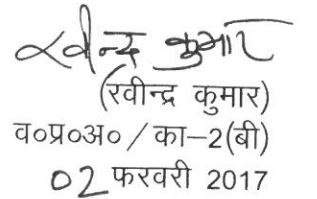 रवीन्द्र कुमार
(रवीन्द्र कुमार)
व०प्र०अ० / का–2(बी)
02 फरवरी 2017